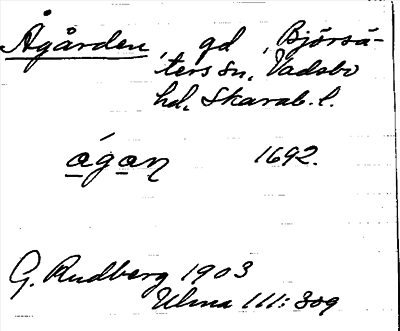 Ågården, gd, Björsä-
ters sn, Vadsbo
hd, Skarab. l.
ágan 1692.
G. Rudberg 1903
Ulma 111: 309